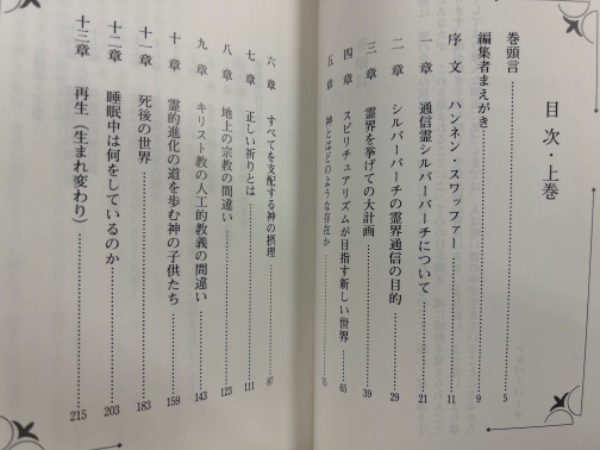 目次・上巻
巻頭言……………5
編集者まえがき……………9
序文　ハンネン・スワッファー……………11
一章　通信霊シルバーバーチについて……………21
二章　シルバーバーチの霊界通信の目的……………29
三章　霊界を挙げての大計画……………39
四章　スピリチュアリズムが目指す新しい世界……………65
五章　神とはどのような存在か……………75
六章　すべてを支配する神の摂理……………87
七章　正しい祈りとは……………111
八章　地上の宗教の間違い……………123
九章　キリスト教の人工的教義の間違い……………143
十章　霊的進化の道を歩む神の子供たち……………159
十一章　死後の世界……………183
十二章　睡眠中は何をしているのか……………203
十三章　再生（生まれ変わり）……………215